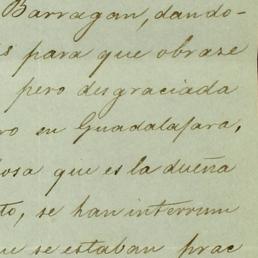 Barragan, dando-
s para que obrase
pero desgraciada
ro en Guadalajara,
osa que es la dueña
to, se han interrum
ue se estaban prac